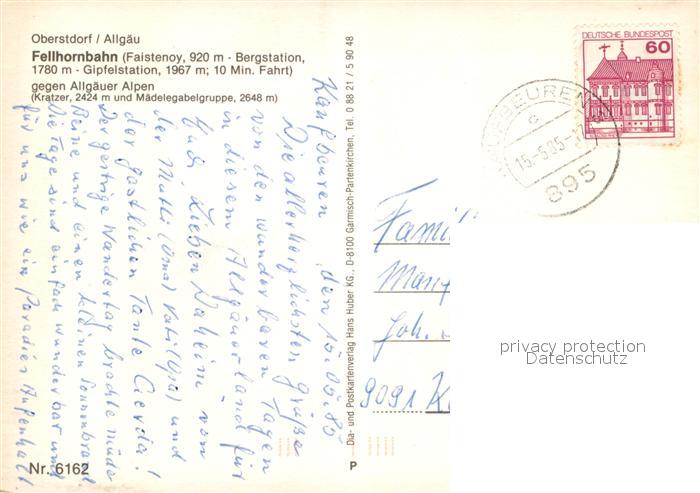 Oberstdorf / Allgäu
Fellhornbahn (Faistenoy, 920 m - Bergstation,
1780 m - Gipfelstation, 1967 m; 10 Min. Fahrt)
gegen Allgäuer Alpen
(Kratzer, 2424 m und Mädelegabelgruppe, 2648 m)
Kaufbeuren, den 15.05.85
Die allerherzlichsten Grüße
von den wunderbaren Tagen
in diesem Allgäuerland für
Euch Lieben Daheim, von
der Mutti (Oma) Vati (Opa) und
der gastlichen Tante
Der gestrige Wandertag brachte müde
Beine und einen kleinen Sonnenbrand
Die Tage sind einfach wunderbar und
für uns wie ein Paradies Aufenthalt
Nr. 6162
Dia- und Postkartenverlag Hans Huber KG., D-8100 Garmisch-Partenkirchen, Tel. 0 88 21 / 5 90 48
P
DEUTSCHE BUNDESPOST
60
KAUFBEUREN
c
15.-5.85
895
Famil
Joh.
9091 K
privacy protection
Datenschutz